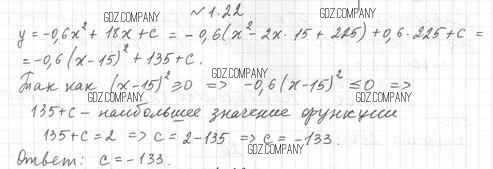 № 1.22
y = -0,6x² + 18x + c = -0,6(x² - 2x · 15 + 225) + 0,6 · 225 + c =
= -0,6(x - 15)² + 135 + c.
Так как (x - 15)² ≥ 0 => -0,6(x - 15)² ≤ 0 =>
135 + c - наибольшее значение функции
135 + c = 2 => c = 2 - 135 => c = -133.
Ответ: c = -133.
GDZ.COMPANY
GDZ.COMPANY
GDZ.COMPANY
GDZ.COMPANY
GDZ.COMPANY
GDZ.COMPANY